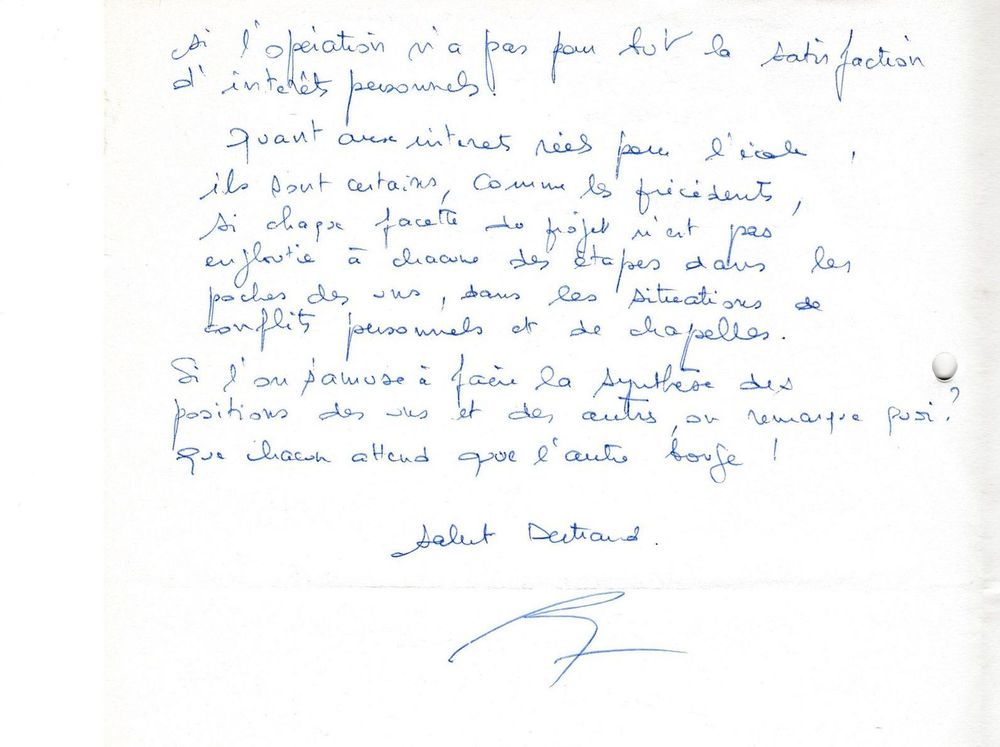 si l'opération n'a pas pour but la satisfaction
d'intérêts personnels.
Quant aux interets réels pour l'école,
ils sont certains, comme les précédents,
si chaque facette du projet n'est pas
engloutie à chacune des étapes dans les
poches des uns, dans les situations de
conflits personnels et de chapelles.
Si l'on s'amuse à faire la synthèse des
positions des uns et des autres, on remarque quoi?
que chacun attend que l'autre bouge !
Salut Bertrand.